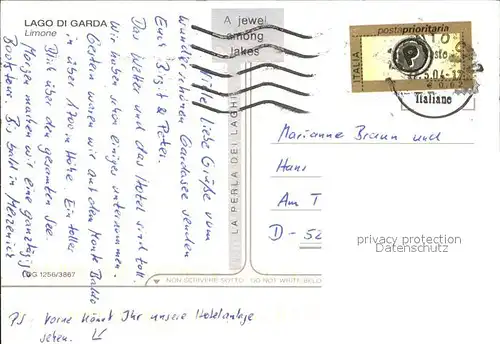 LAGO DI GARDA
Limone
A jewel
among
lakes
LA PERLA DEI LAGHI
Viele liebe Grüße vom
wunderschönen Gardasee senden
Euch Birgit & Peter.
Das Wetter und das Hotel sind toll.
Wir haben schon einiges unternommen.
Gestern waren wir auf dem Monte Baldo
in über 1700 m Höhe. Ein toller
Blick über den gesamten See.
Morgen machen wir eine ganztägige
Bootstour. Bis bald in Merzenich
OG 1256/3867
PS: Vorne könnt Ihr unsere Hotelanlage
sehen.
NON SCRIVERE SOTTO DO NOT WRITE BELO
postaprioritaria
ITALIA
P
Italiane
Marianne Braun und
Hans
Am T
D-52
privacy protection
www.oldthing.de